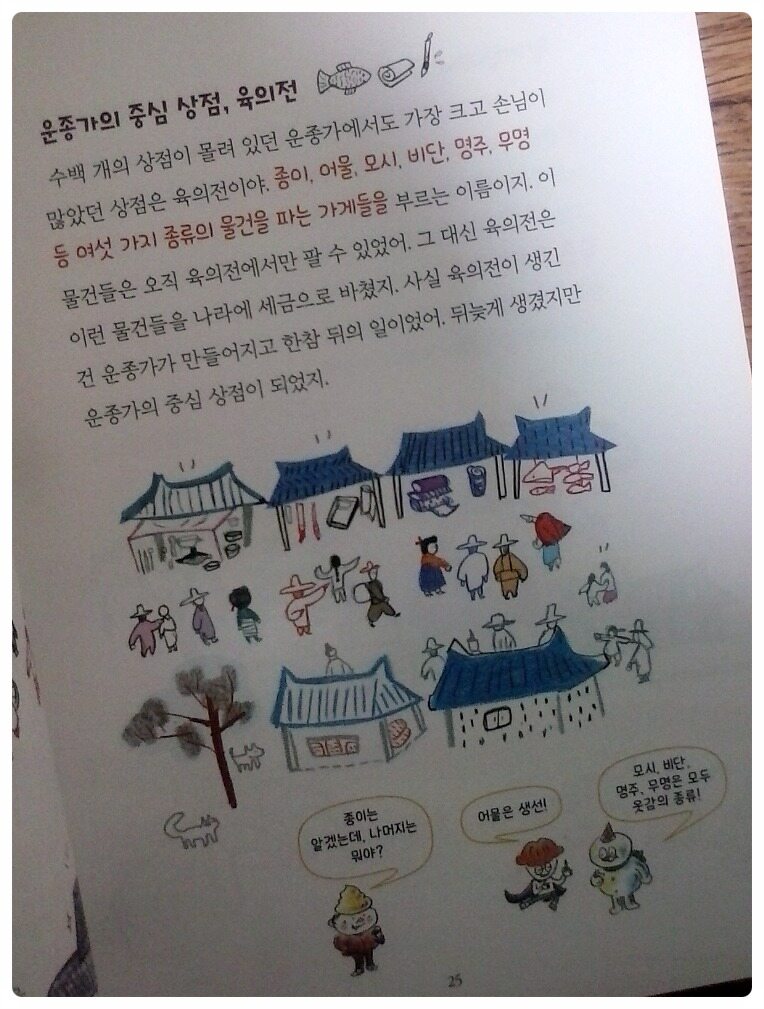 운종가의 중심 상점, 육의전
수백 개의 상점이 몰려 있던 운종가에서도 가장 크고 손님이
많았던 상점은 육의전이야. 종이, 어물, 모시, 비단, 명주, 무명
등 여섯 가지 종류의 물건을 파는 가게들을 부르는 이름이지. 이
물건들은 오직 육의전에서만 팔 수 있었어. 그 대신 육의전은
이런 물건들을 나라에 세금으로 바쳤지. 사실 육의전이 생긴
건 운종가가 만들어지고 한참 뒤의 일이었어. 뒤늦게 생겼지만
운종가의 중심 상점이 되었지.
종이는
알겠는데, 나머지는
뭐야?
어물은 생선!
모시, 비단,
명주, 무명은 모두
옷감의 종류!
25